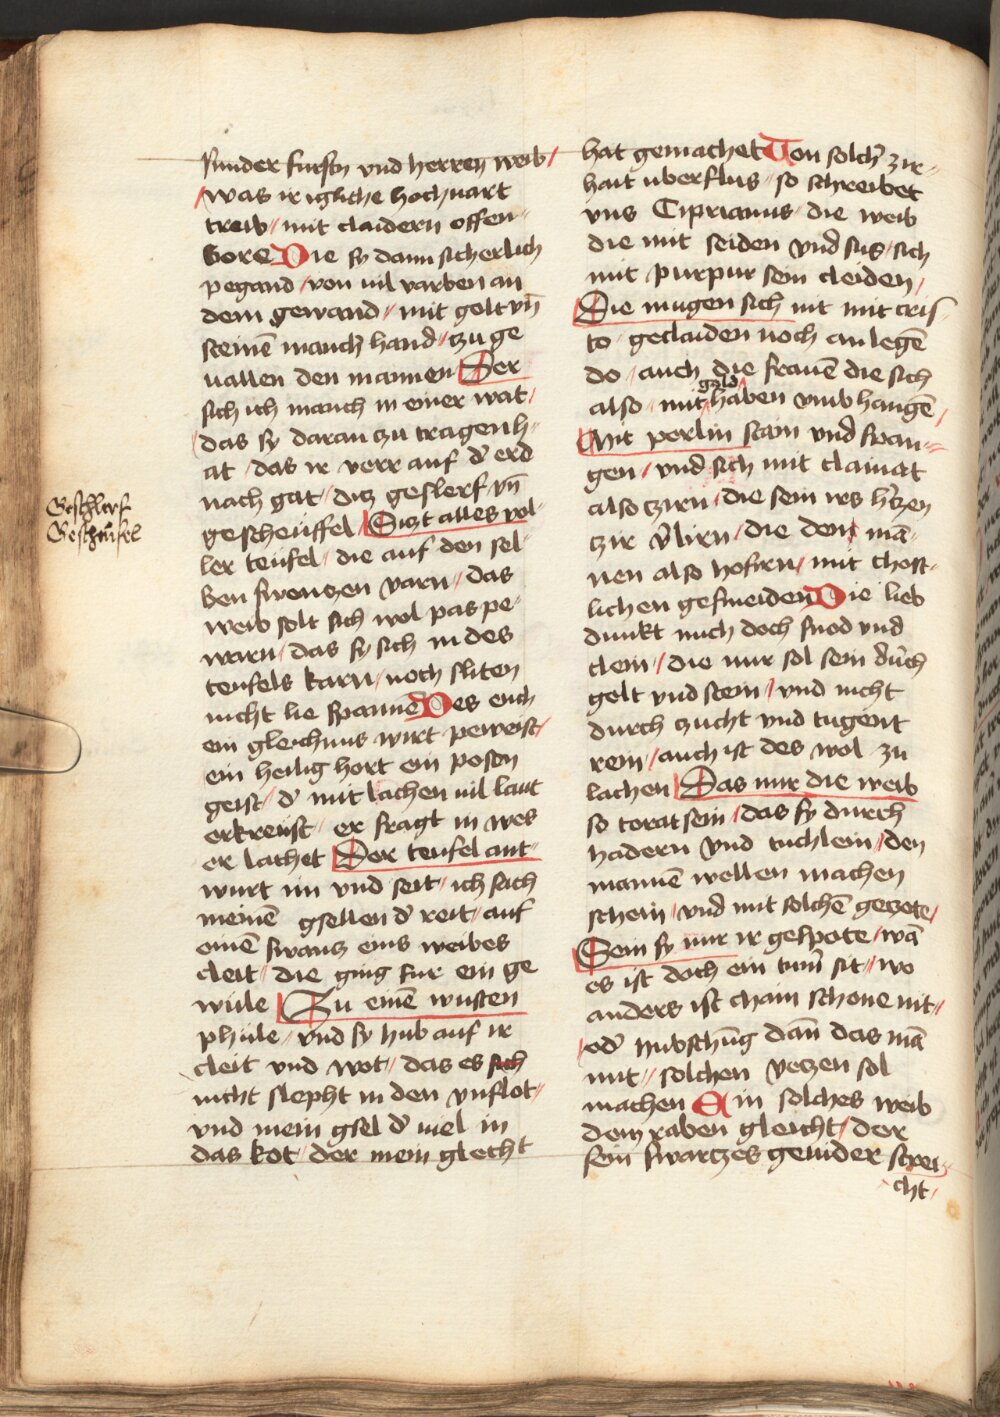 sunder fursten vnd herren weib /
/ was ir igliche hochuart
treib / mit claidern offen-
bore Die sy dann sicherlich
pegand / von uil varben an
dem gewand / mit golt vn̄
steinē manch hand / tzu ge
uallen den mannen Der
sich ich manch in einer wat /
das sy daran tzu tragen h-
at / das ir verr auf d erd
nach gat / ditz geslerf vn̄
gescheuffel / Sitzt alles vol-
ler teufel / die auf den sel-
ben swentzen varn / das
weib solt sich wol pas pe-
warn / das sy sich in des
teufels karn / noch sliten
nicht lie spannē Des euch
ein gleichnus wirt peweist /
ein heilig hort ein posen
geist / d mit lachen uil laut
erkreist / er fragt in wes
er lachet Der teufel ant-
wurt im vnd seit / ich sach
meinē gsellen d reit / auf
einē swantz eins weibes
cleit / die ging fur ein ge
wule Zu einē wusten
phule / vnd sy hub auf ir
cleit vnd wot / das es sich
nicht slepht in den vnflot /
vnd mein gsel d uiel in
das kot / der mein glecht
Geschlerf
Gescheufel
hat gemachet Von solch zir-
hait uberflus / so schreibet
vns Ciprianus / die weib
die mit seiden vnd sus / sich
mit purpur sein cleiden /
Die mugen sich nit mit cris-
to geclaiden noch anlegē
do / auch die frauē die sich
also mit gold haben vmbhangē /
Mit perlin stain vnd span-
gen / vnd sich mit clainat
also tzirn / die sein irs htzen
tzir vlirn / die den mā-
nen also hofirn / mit chost-
lichen gesmeiden Die lieb
dunkt mich doch snod vnd
clein / die nur sol sein durch
golt vnd stein / vnd nicht
durch zucht vnd tugent
rein / auch ist des wol zu
lachen Das nur die weib
so torat sein / das sy durch
hadern vnd tuchlein / den
mannē wellen machen
schein / vnd mit solchē getzote /
Sein sy nur ir gespote / wā
es ist doch ein tum sit / wo
anders ist chain schone nit /
/ od hubschūg dan das mā
mit solchen vetzen sol
machen Ein solches weib
dem raben gleicht / der
sein swartzes geuider strei-
cht /